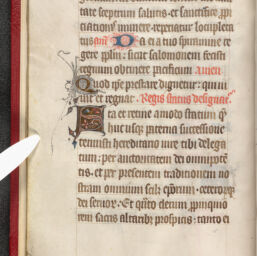 tate sceptrum salutis. et sanctifice ppi
ciationis munere. repetatur locupleta
tus. am̄. Da ei a tuo spiramine re
gere pplm̄: sicut salomonem fecisti
regnum obtinere pacificum. Amen.
Quod ip̄e prestare dignetur: qui ui
uit et regnat. Regis status designatꝰ.
Sta et retine amodo statum q̄
huc usqꝫ paterna successione
tenuisti hereditario iure tibi delega
tum: per auctoritatem dei omnipotē
tis. et per presentem traditionem no
stram omnium scilꝫ ep̄orum. ceterorqꝫ
dei seruor. Et q̄nto clerum p̱pinquio
rem sacris altaribꝫ prospicis: tanto ei